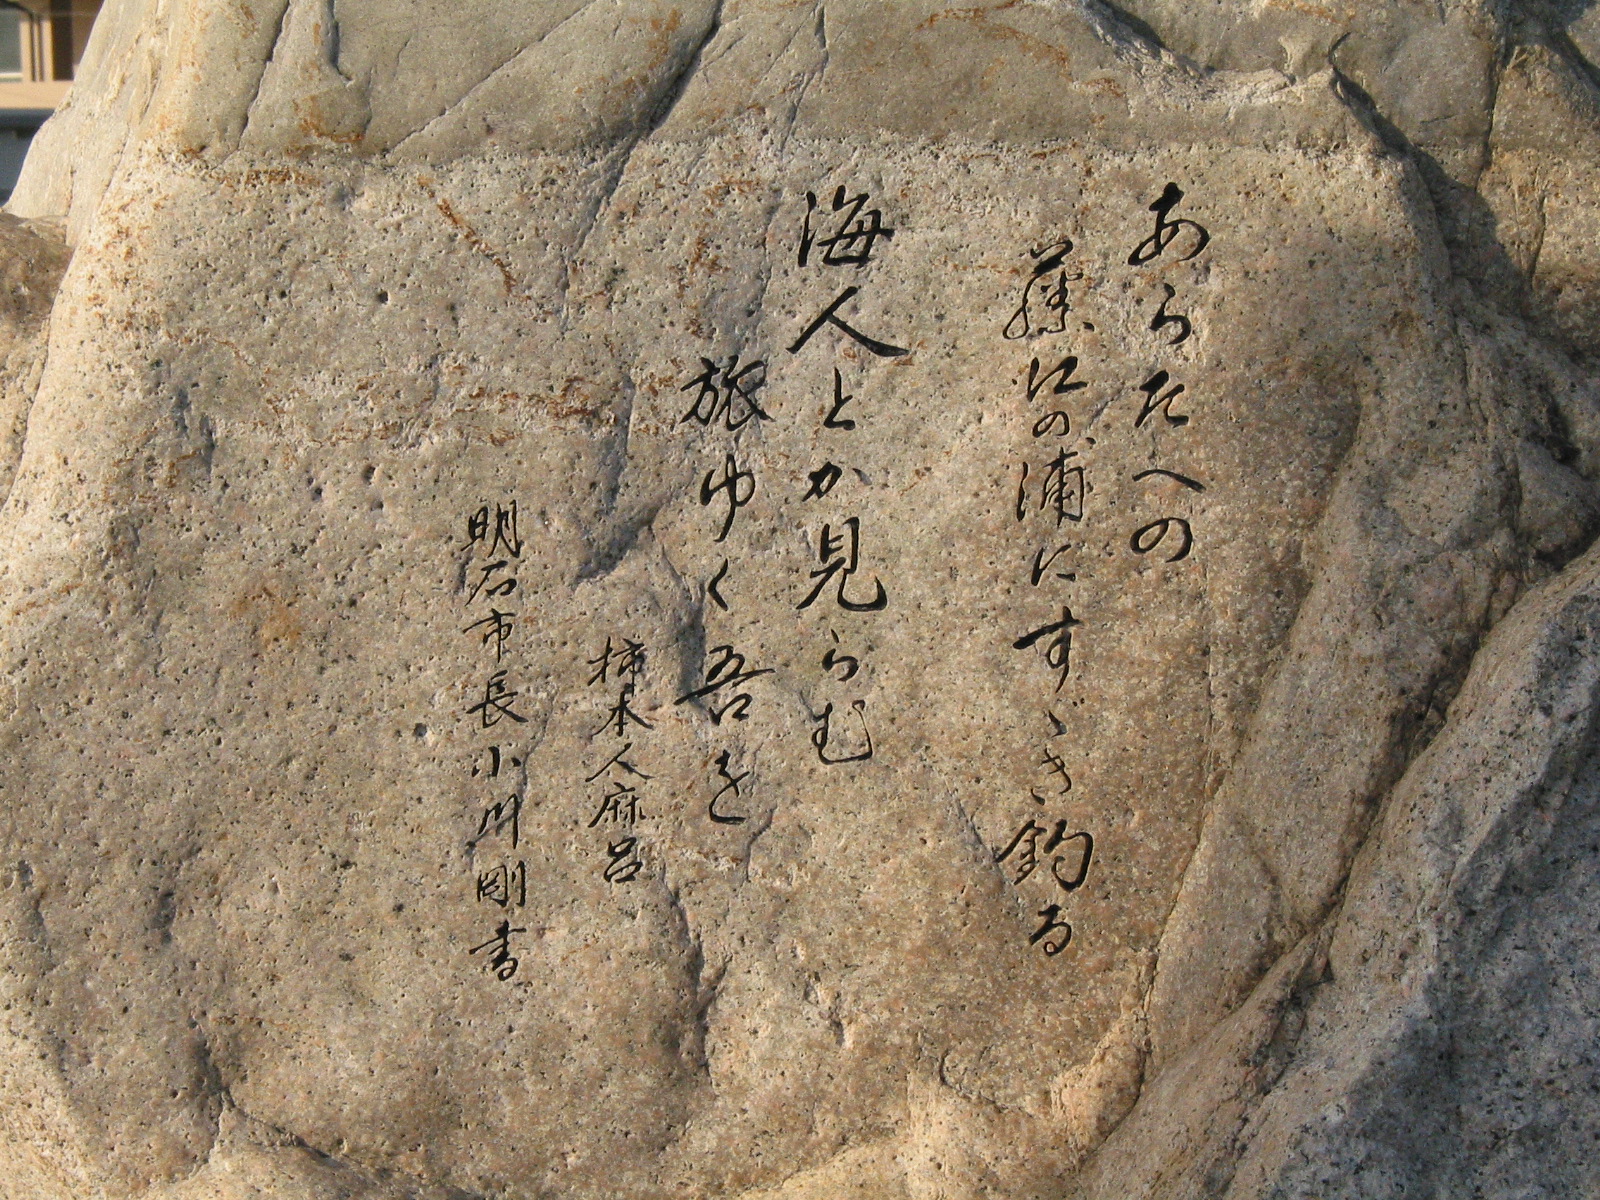 あらたへの
藤江の浦にすゞき釣る
海人とか見らむ
旅ゆく吾を
柿本人麻呂
明石市長小川剛書